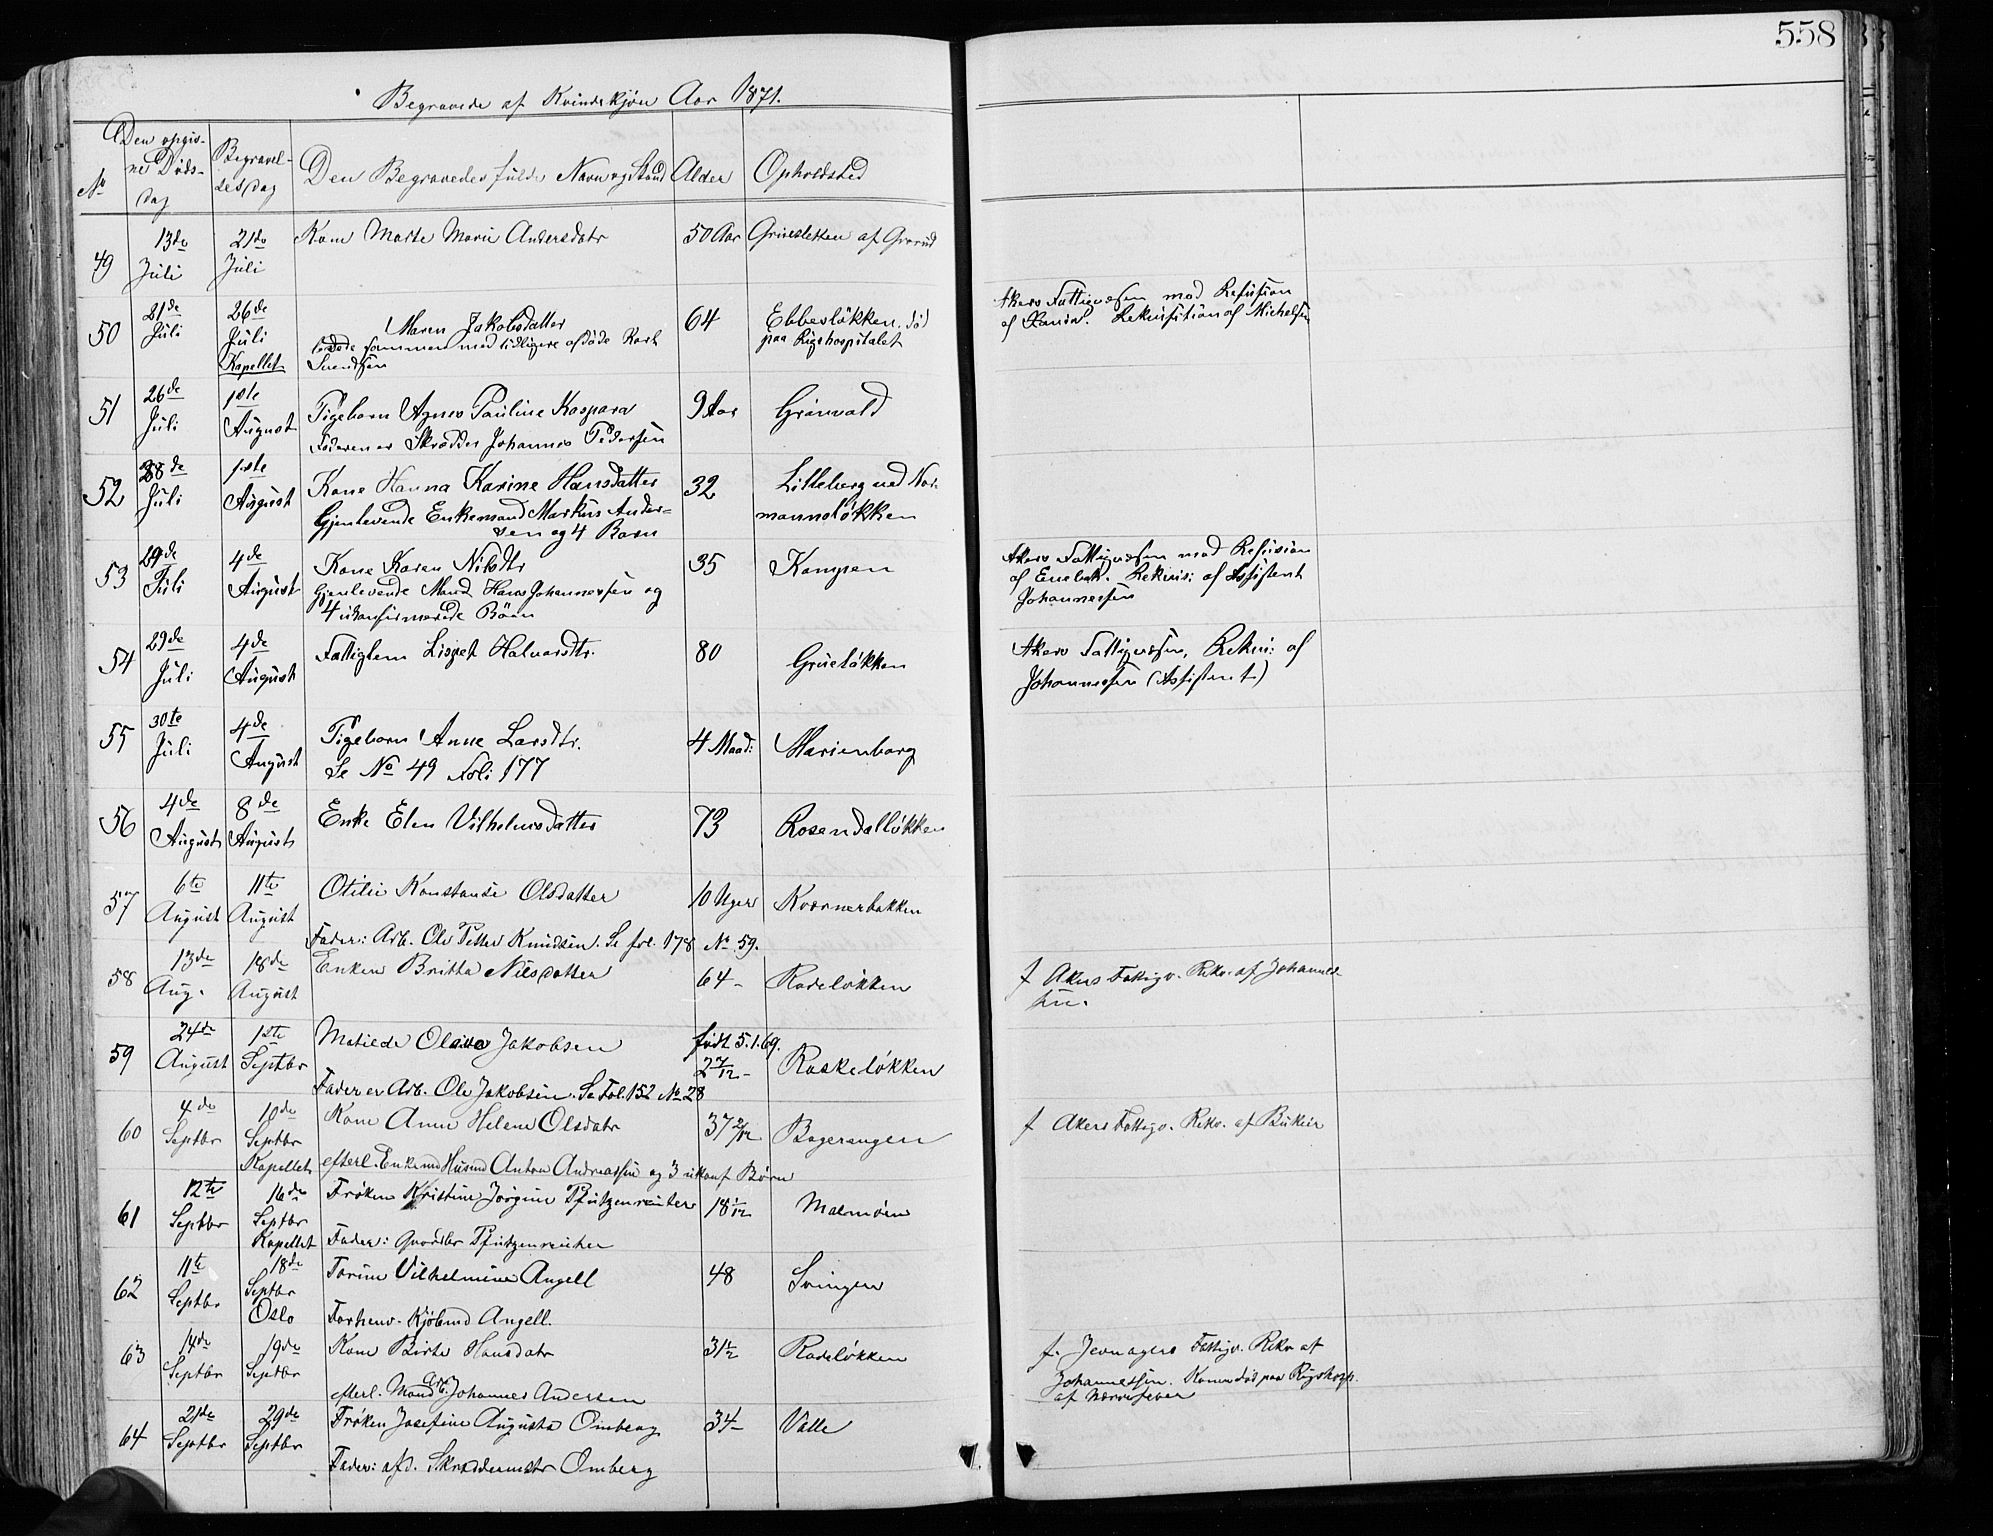 558
Begravede af Kvindekjøn Aar 1871.
No
Den opgiv-
ne Døds-
dag
Begravel-
sesdag
Den Begravedes fulde Navn og Stand
Alder
Opholdsted
49 13de Juli 21de Juli Kone Marte Marie Andersdatr 50 Aar Gruesletten af Grorud
50 21de Juli 26de Juli Kapellet Maren Jakobsdatter 64 Ebbesløkken. død
sammen med tidligere afdøde Karl paa Rigshospitalet
Svendsen
Akers Fattigvæsen med Refusion
af Rekvisition af Michelsen
51 26de Juli 1ste August Pigebarn Agnes Pauline Kaspara 9 Aar Grönvold
Faderen er Skrædder Johannes Pedersen
52 28de Juli 1ste August Kone Hanna Karine Hansdatter 32 Lilleberg ved Nor-
Gjenlevende Enkemand Markus Ander- mannsløkken
sen og 4 Børn
53 29de Juli 4de August Kone Karen Nilsdtr 35 Kampen
Gjenlevende Mand Hans Johannessen og
4 ukonfirmerede Börn
Akers Fattigvæsen med Refusion
af Enebak. Rekvis: af Assistent
Johannessen
54 29de Juli 4de August Fattiglem Lispet Halvorsdtr. 80 Grueløkken
Akers Fattigvæsen, Rekvi: af
Johannessen (Assistent)
55 30te Juli 4de August Pigebarn Anne Larsdtr. 4 Maad: Marienborg
Se No 49 Foli 177
56 4de August 8de August Enke Elen Vilhelmsdatter 73 Rosendalløkken
57 6te August 11te August Otilie Konstanse Olsdatter 10 Uger Kværnerbakken
Fader: Arb. Ole Petter Knudsen. Se fol. 178 No 59.
58 13de Aug. 18de August Enken Britta Nilsdatter 64 - Rodeløkken
f Akers Fattigv. Rekv. af Johannes-
sen.
59 24de August 1ste Septbr Matilde Olava Jakobsen født 5.1.69. 2 7/12 - Roskeløkken
Fader er Arb. Ole Jakobsen. Se Fol. 152 No 28
60 4de Septbr 10de Septbr Kapellet Kone Anne Helene Olsdatr 37 2/12 Bagerangen
efterl. Enkemd Husmd Anton Andreassen og 3 ukonf Børn
f Akers Fattigv. Rekv. af
61 12te Septbr 16de Septbr Kapellet Frøken Kristine Jørgine Pfutzenreuter 18 1/12 Malmøen
Fader: Pfutzenreuter
62 11te Septbr 18de Septbr Oslo Torine Vilhelmine Angell 48 Svingen
Forhenv. Kjøbmd Angell.
63 14de Septbr 19de Septbr Kone Birte Hansdatr 31 1/2 Rodeløkken
efterl. Mand Arb. Johannes Andersen
f. Jevnagers Fattigv. Rekv af
Johannessen. Konen død paa Rigshosp.
af Nervefeber
64 21de Septbr 29de Septbr Frøken Josefine Augusta Omberg 34 - Valle
Fader: afd. Skræddermstr Omberg